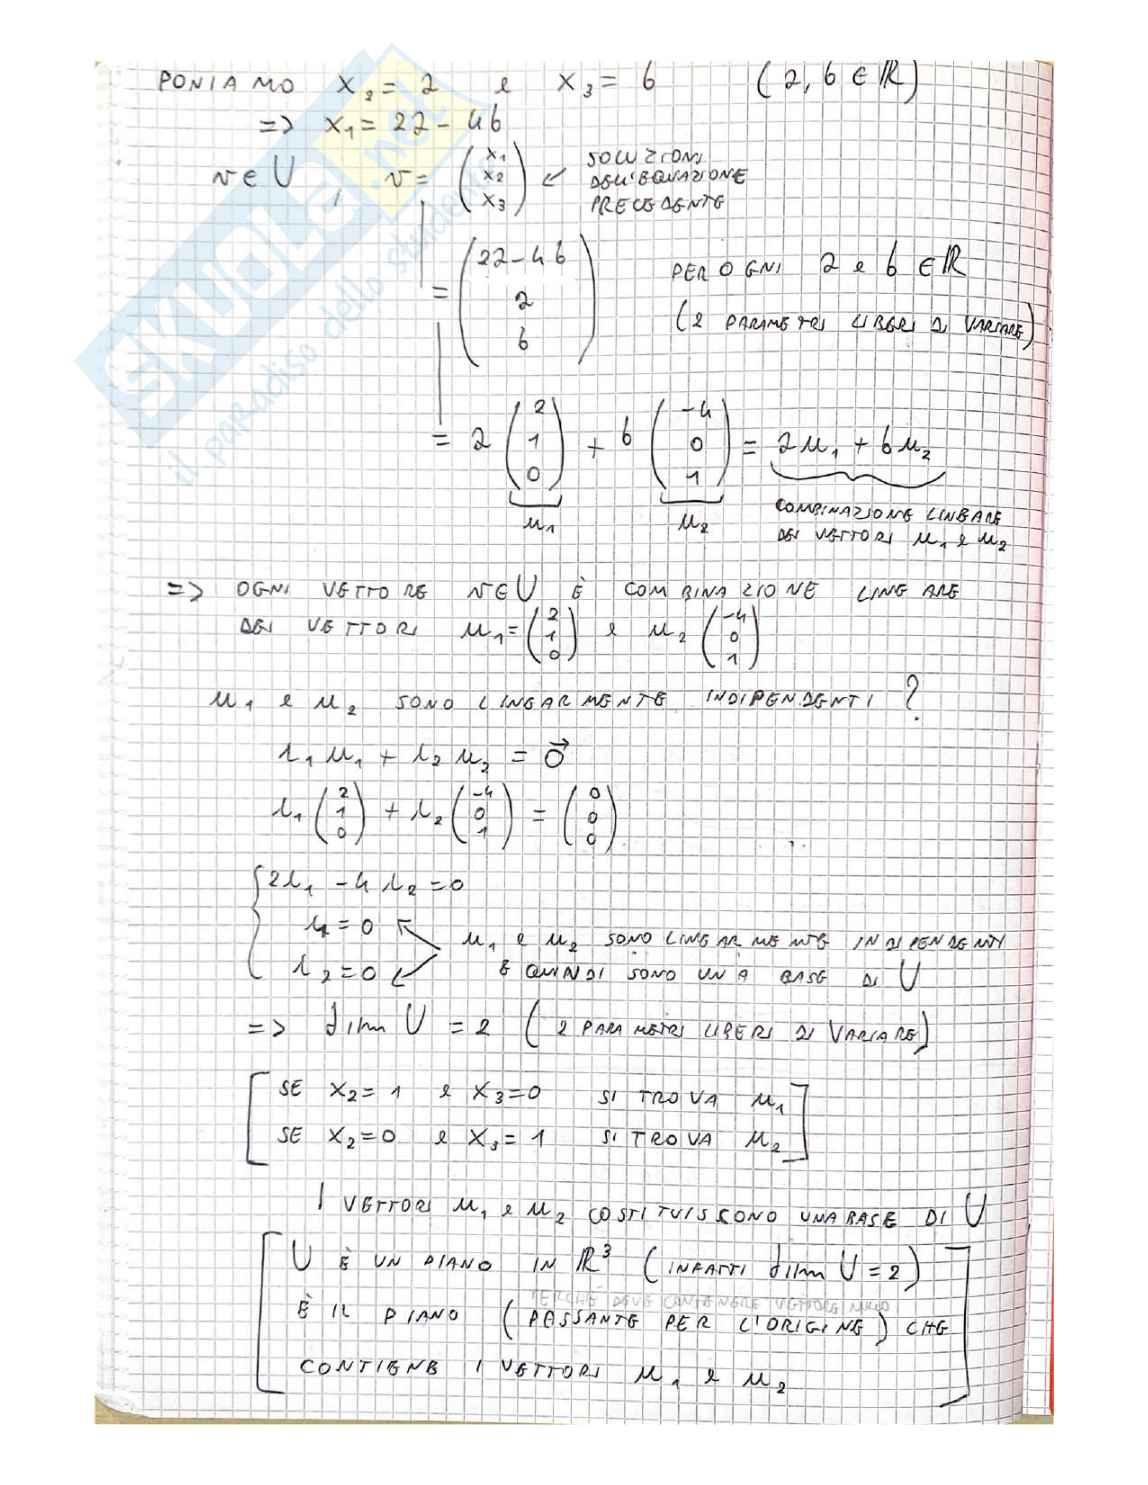 PONIAMO x₂ = a e x₃ = b (a, b ∈ ℝ)
=> x₁ = 2a - 4b
v ∈ U, v = (x₁ x₂ x₃) ↙ SOLUZIONI DELL'EQUAZIONE PRECEDENTE
= (2a - 4b a b) PER OGNI a e b ∈ ℝ
(2 PARAMETRI LIBERI DI VARIARE)
= a (2 1 0) + b (-4 0 1) = a u₁ + b u₂
u₁ u₂ COMBINAZIONE LINEARE
DEI VETTORI u₁ e u₂
=> OGNI VETTORE v ∈ U È COMBINAZIONE LINEARE
DEI VETTORI u₁ = (2 1 0) e u₂ (-4 0 1)
u₁ e u₂ SONO LINEARMENTE INDIPENDENTI ?
λ₁ u₁ + λ₂ u₂ = 0⃗
λ₁ (2 1 0) + λ₂ (-4 0 1) = (0 0 0)
{ 2λ₁ - 4λ₂ = 0
λ₁ = 0
u₁ e u₂ SONO LINEARMENTE INDIPENDENTI
λ₂ = 0 E QUINDI SONO UNA BASE DI U
=> dim U = 2 (2 PARAMETRI LIBERI DI VARIARE)
[ SE x₂ = 1 e x₃ = 0 SI TROVA u₁
SE x₂ = 0 e x₃ = 1 SI TROVA u₂ ]
I VETTORI u₁ e u₂ COSTITUISCONO UNA BASE DI U
[ U È UN PIANO IN ℝ³ (INFATTI dim U = 2)
PERCHÉ DEVE CONTENERE VETTORE NULLO
È IL PIANO (PASSANTE PER L'ORIGINE) CHE
CONTIENE I VETTORI u₁ e u₂ ]
SKUOLA.net
il paradiso dello studente